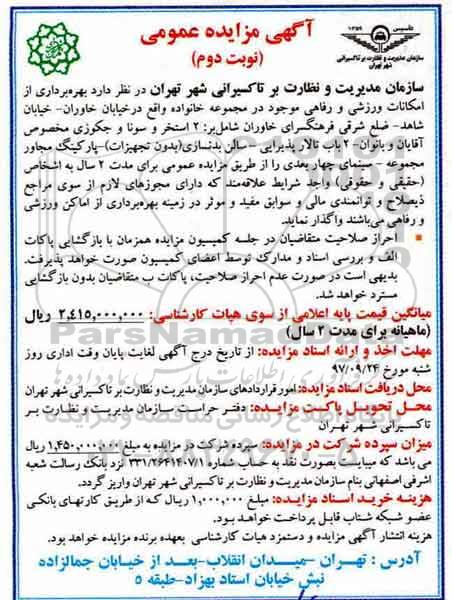 تاسیس ۱۳۵۹
سازمان مدیریت و نظارت بر تاکسیرانی
شهر تهران
آگهی مزایده عمومی
(نوبت دوم)
سازمان مدیریت و نظارت بر تاکسیرانی شهر تهران در نظر دارد بهره‌برداری از
امکانات ورزشی و رفاهی موجود در مجموعه خانواده واقع درخیابان خاوران- خیابان
شاهد- ضلع شرقی فرهنگسرای خاوران شامل‌بر: ۲ استخر و سونا و جکوزی مخصوص
آقایان و بانوان- ۲ باب تالار پذیرایی - سالن بدنسازی(بدون تجهیزات)-پارکینگ مجاور
مجموعه - سینمای چهار بعدی را از طریق مزایده عمومی برای مدت ۲ سال به اشخاص
(حقیقی و حقوقی) واجد شرایط علاقه‌مند که دارای مجوزهای لازم از سوی مراجع
ذیصلاح و توانمندی مالی و سوابق مفید و موثر در زمینه بهره‌برداری از اماکن ورزشی
و رفاهی می‌باشند واگذار نماید.
▪ احراز صلاحیت متقاضیان در جلسه کمیسیون مزایده همزمان با بازگشایی پاکات
الف و بررسی اسناد و مدارک توسط اعضای کمیسیون صورت خواهد پذیرفت.
بدیهی است در صورت عدم احراز صلاحیت، پاکات ب متقاضیان بدون بازگشایی
مسترد خواهد شد.
میانگین قیمت پایه اعلامی از سوی هیات کارشناسی: ۲,۴۱۵,۰۰۰,۰۰۰ ریال
(ماهیانه برای مدت ۲ سال)
مهلت اخذ و ارائه اسناد مزایده: از تاریخ درج آگهی لغایت پایان وقت اداری روز
شنبه مورخ ۹۷/۰۹/۲۴
محل دریافت اسناد مزایده: امور قراردادهای سازمان مدیریت و نظارت بر تاکسیرانی شهر تهران
محل تحویل پاکت مزایده: دفتر حراست سازمان مدیریت و نظارت بر
تاکسیرانی شهر تهران
میزان سپرده شرکت در مزایده: سپرده شرکت در مزایده به مبلغ ۱,۴۵۰,۰۰۰,۰۰۰ ریال
می باشد که میبایست بصورت نقد به حساب شماره ۳۳۱/۲۶۴۱۴۰۷/۱ نزد بانک رسالت شعبه
اشرفی اصفهانی بنام سازمان مدیریت و نظارت بر تاکسیرانی شهر تهران واریز گردد.
هزینه خرید اسناد مزایده: مبلغ ۱,۰۰۰,۰۰۰ ریال که از طریق کارتهای بانکی
عضو شبکه شتاب قابل پرداخت خواهد بود.
هزینه انتشار آگهی مزایده و دستمزد هیات کارشناسی بعهده برنده مزایده خواهد بود.
آدرس : تهران -میدان انقلاب-بعد از خیابان جمالزاده
نبش خیابان استاد بهزاد-طبقه ۵
ParsNamadData
۰۲۱-۸۸۳۴۹۶۷۰-۵